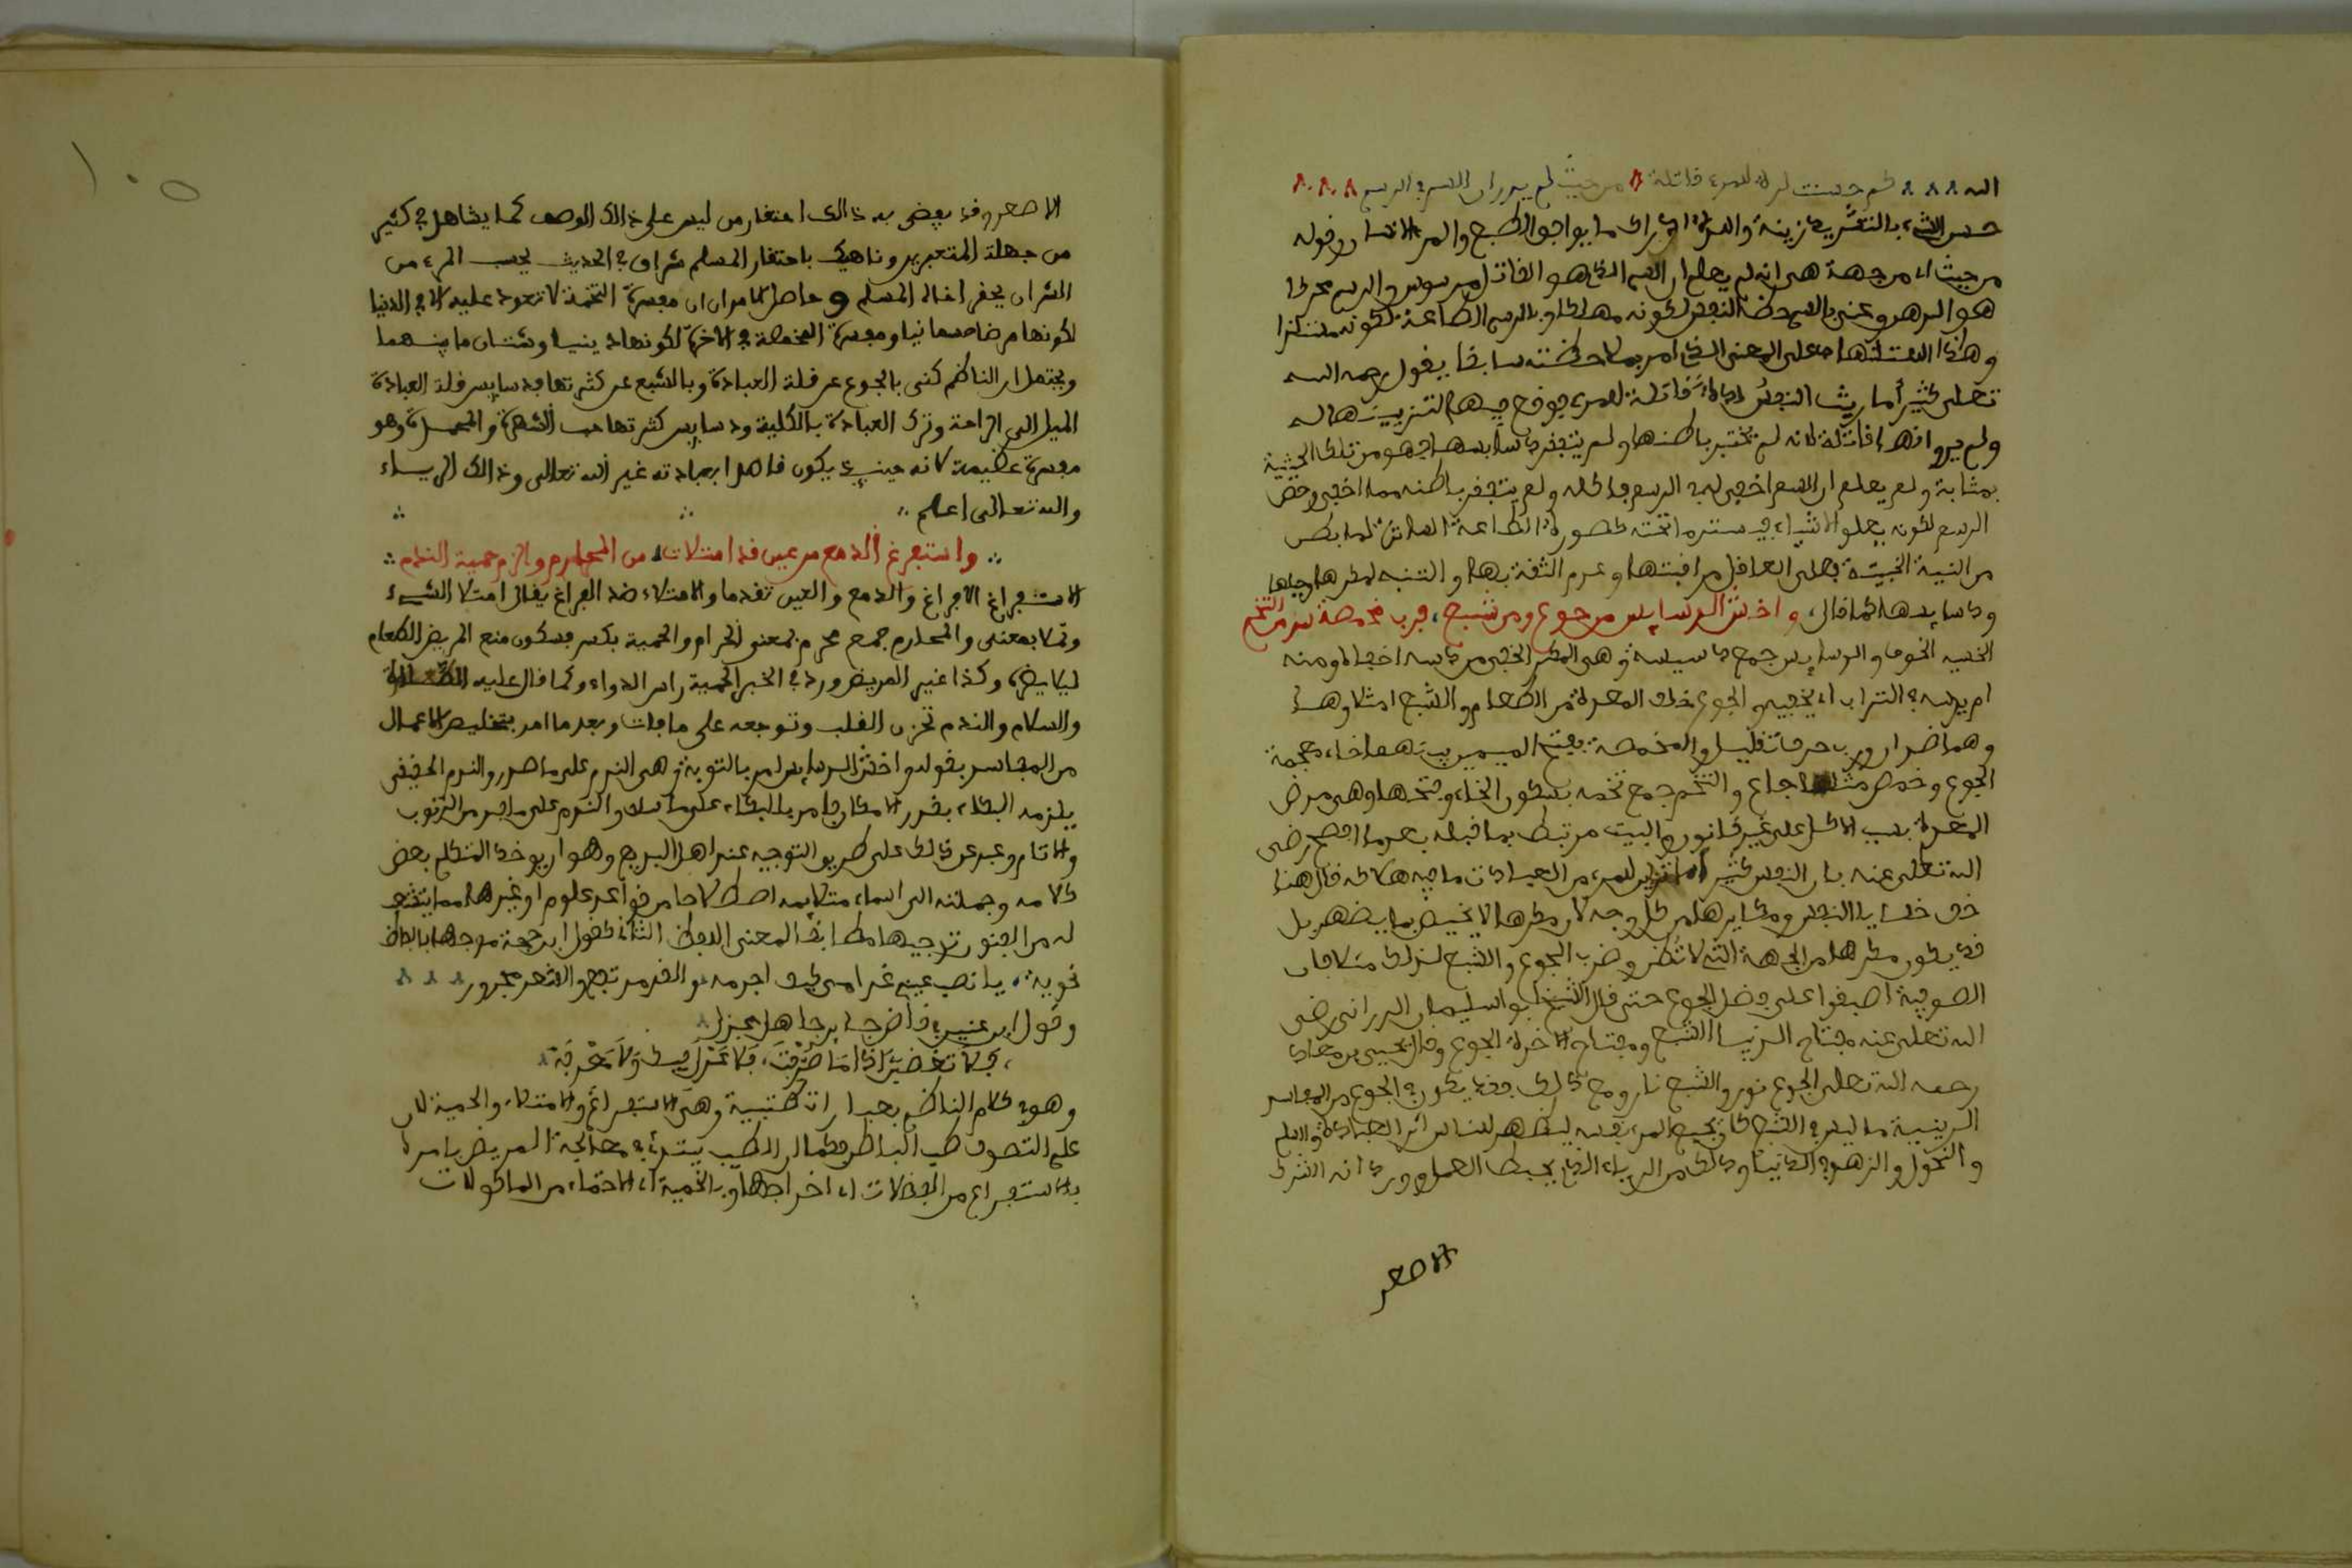 الله كم حسنت لذة للمرء قاتلة من حيث لم يدر ان السم في الدسم
حسن الشيء بالتشديد زينه واللذة ادراك ما يوافق الطبع والمرء الانسان وقوله
من حيث اي من جهة هي انه لم يعلم ان السم الذي هو القاتل مدسوس والدسم محركا
هو الزهم وعنى بالسم حظ النفس لكونه مهلكا وبالدسم الطاعة لكونه مستلذا
وهذا المعنى الذي امر بملاحظته سابقا يقول رحمه الله
تعلى كثيرا ما رينت النفس لذة قاتلة للمرء فوقع فيها لتزيينها له
ولم يدر انها قاتلة لانه لم يختبر باطنها ولم يتفقد دسايسها فهو من تلك الحيثية
بمثابة ولم يعلم ان السم اخفي له في الدسم فاكله ولم يتفقد باطنه مما اخفي وخص
الدسم لكونه يعلو الاشياء فيستر ما تحته كصورة الطاعة الساترة لما بطن
من النية الخبيثة فعلى العاقل مراقبتها وعدم الثقة بها والتنبه لمكرها وحيلها
ودسايسها كما قال، واخش الدسايس من جوع ومن شبع، فرب مخمصة شر من التخم
الخشية الخوف والدسايس جمع دسيسة وهي المكر الخفي من دسه اخفاه ومنه
ام يدسه في التراب اي يخفيه والجوع خلو المعدة من الطعام والشبع امتلاؤها
وهما ضدان ورب حرف تقليل والمخمصة بفتح الميمين بينهما خاء معجمة
الجوع وخمص مثلثا جاع والتخم جمع تخمة بسكون الخاء وفتحها وهي مرض
المعدة بسبب الاكل على غير قانون والبيت مرتبط بما قبله بعد ما افصح رضي
الله تعلى عنه بان النفس كثيرا ما تزين للمرء من العبادات ما فيه هلاكه قال هنا
خف خفايا النفس ومكايدها من كل وجه لان مكرها لا يختص بما يظهر بل
قد يكون مكرها من الجهة التي لا تظن وضرب الجوع والشبع لذلك مثلا فان
الصوفية اطبقوا على فضل الجوع حتى قال الشيخ ابو سليمان الدراني رضي
الله تعلى عنه مفتاح الدنيا الشبع ومفتاح الاخرة الجوع وقال يحيى بن معاذ
رحمه الله تعلى الجوع نور والشبع نار ومع ذلك فقد يكون في الجوع من المفاسد
الدينية ما ليس في الشبع كان يجيع المرء نفسه ليظهر للناس اثر العبادة والالم
والنحول والزهد في الدنيا وذلك من الرياء الذي يحبط العمل وورد انه الشرك
الاصغر
الاصغر وقد يفضي به ذالك احتقار من ليس على ذالك الوصف كما يشاهد في كثير
من جهلة المتعبدين وناهيك باحتقار المسلم شرا في الحديث بحسب المرء من
الشر ان يحقر اخاه المسلم وحاصل كلامه ان مفسدة التخمة لا تعود عليه الا في الدنيا
لكونها مرضا جسمانيا ومفسدة المخمصة في الاخرة لكونها دينيا وشتان ما بينهما
ويحتمل ان الناظم كنى بالجوع عن قلة العبادة وبالشبع عن كثرتها فدسايس قلة العبادة
الميل الى الراحة وترك العبادة بالكلية ودسايس كثرتها حب الشهرة والمحمدة وهو
مفسدة عظيمة لانه حينئذ يكون قاصدا بعبادته غير الله تعالى وذالك الرياء
والله تعالى اعلم
واستفرغ الدمع من عين قد امتلات من المحارم والزم حمية الندم
الاستفراغ الافراغ والدمع والعين تقدما والامتلاء ضد الفراغ يقال امتلا الشيء
وتملا بمعنى والمحارم جمع محرم بمعنى الحرام والحمية بكسر فسكون منع المريض الطعام
ليلا يضره وكذا غير المريض ورد في الخبر الحمية راس الدواء وكما قال عليه الصلاة
والسلام والندم تحزن القلب وتوجعه على ما فات وبعد ما امر بتخليص الاعمال
من المفاسد بقوله واخش الدسايس امر بالتوبة وهي الندم على ما صدر والندم الحقيقي
يلزمه البكاء بقدر الامكان فامر بالبكاء على ما سلف والندم على ما فرط من الذنوب
والاثام وعبر عن ذلك على طريق التوجيه عند اهل البديع وهو ان يوجه المتكلم بعض
كلامه وجملته الى اسماء متلايمة اصطلاحا من قواعد علوم او غيرها مما يتشعب
له من الفنون توجيها مطابقا لمعنى اللفظ الثاني كقول ابن حجة موجها بالفاظ
نحوية، يا نصب عيني غرامي كيف اجرمه والقدر مرتفع والشعر مجرور
وقول ابن عنين في قاض جاير جاهل عزل
، فلا تغضبن اذا ما صرفت، فلا عدل فيك ولا معرفة
وهو في كلام الناظم بعبارات طبية وهي الاستفراغ والامتلاء والحمية لان
علم التصوف طب الباطن فكما ان الطبيب يبتدئ في معالجة المريض بامره
بالاستفراغ من الفضلات اي اخراجها وبالحمية اي الاحتماء من الماكولات